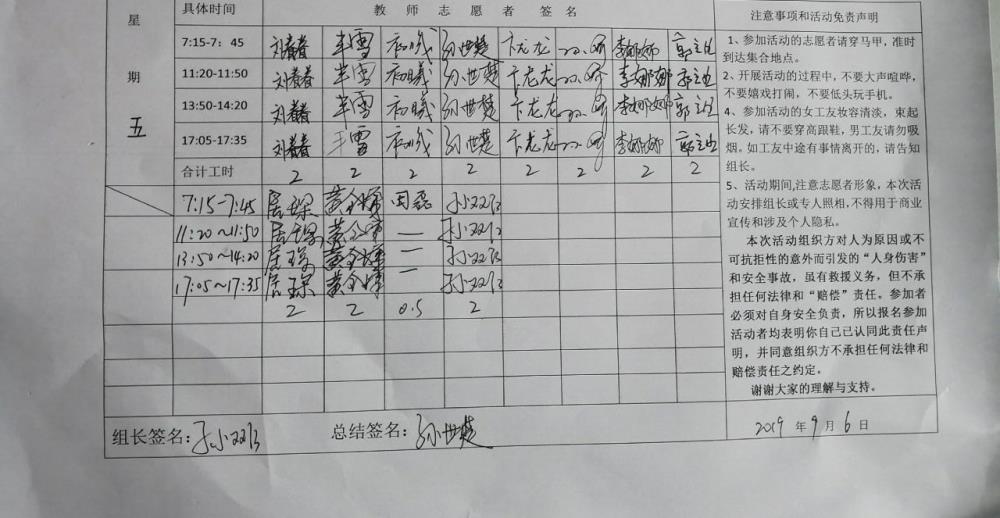 星期五
具体时间 教师志愿者签名 注意事项和活动免责声明
7:15-7：45 刘春春 孙世楚 卞龙龙 李娜娜
11:20-11:50 刘春春 孙世楚 卞龙龙 李娜娜
13:50-14:20 刘春春 孙世楚 卞龙龙 李娜娜
17:05-17:35 刘春春 孙世楚 卞龙龙 李娜娜
合计工时 2 2 2 2 2 2 2 2
7:15-7:45 居琛 周磊 孙小双
11:20~11:50 居琛 — 孙小双
13:50~14:20 居琛 — 孙小双
17:05~17:35 居琛 — 孙小双
2 2 0.5 2
1、参加活动的志愿者请穿马甲，准时
到达集合地点。
2、开展活动的过程中，不要大声喧哗，
不要嬉戏打闹，不要低头玩手机。
4、参加活动的女工友妆容清淡，束起
长发，请不要穿高跟鞋，男工友请勿吸
烟。如工友中途有事情离开的，请告知
组长。
5、活动期间，注意志愿者形象，本次活
动安排组长或专人照相，不得用于商业
宣传和涉及个人隐私。
本次活动组织方对人为原因或不
可抗拒性的意外而引发的“人身伤害”
和安全事故，虽有救援义务，但不承
担任何法律和“赔偿”责任。参加者
必须对自身安全负责，所以报名参加
活动者均表明你自己已认同此责任声
明，并同意组织方不承担任何法律和
赔偿责任之约定。
谢谢大家的理解与支持。
组长签名：孙小双 总结签名：孙世楚 2019 年 9 月 6 日